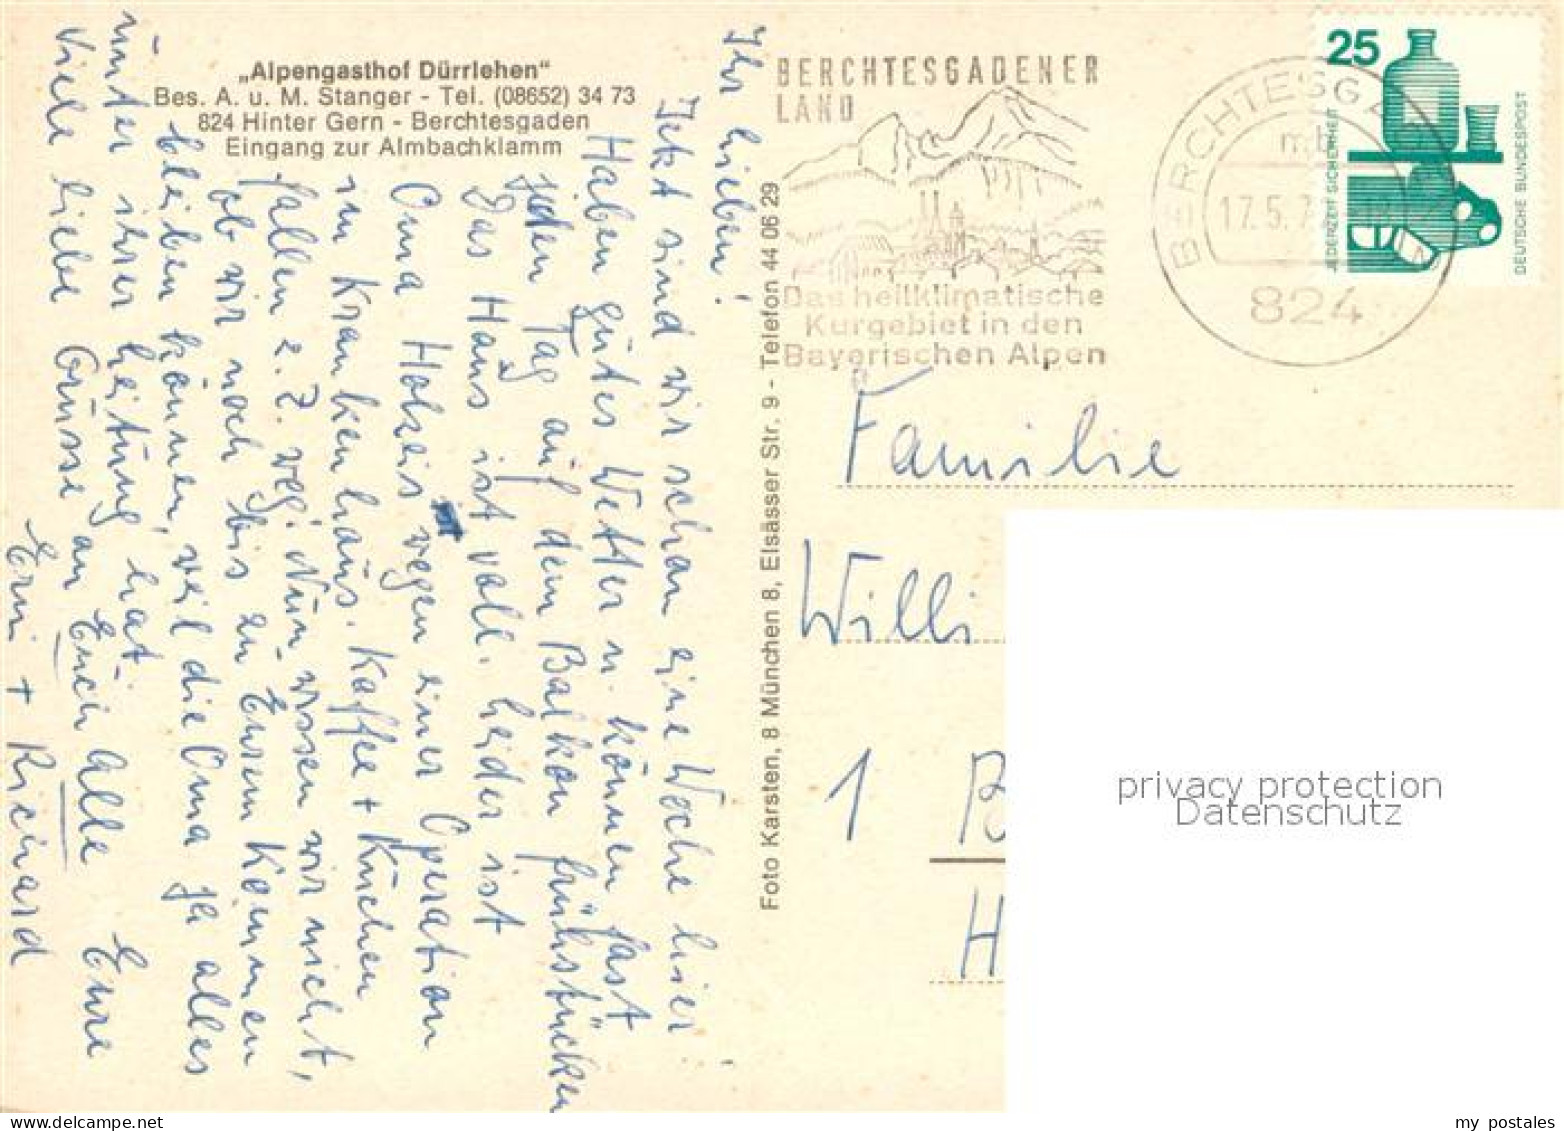 „Alpengasthof Dürrlehen“
Bes. A. u. M. Stanger - Tel. (08652) 34 73
824 Hinter Gern - Berchtesgaden
Eingang zur Almbachklamm
Ihr Lieben!
Jetzt sind wir schon eine Woche hier!
Haben gutes Wetter u. können fast
jeden Tag auf dem Balkon frühstücken
Das Haus ist voll. Leider ist
Oma Holzeis wegen einer Operation
im Krankenhaus. Kaffee + Kuchen
fallen z. Z. weg. Nun wissen wir nicht,
ob wir noch bis zu Eurem Kommen
bleiben können, weil die Oma ja alles
unter ihrer Leitung hat.
Viele liebe Grüsse an Euch alle Eure
Erni + Richard
Foto Karsten, 8 München 8, Elsässer Str. 9 - Telefon 44 06 29
BERCHTESGADENER
LAND
Das heilklimatische
Kurgebiet in den
Bayerischen Alpen
BERCHTESGADEN
mb
17.5.7
824
25
JEDERZEIT SICHERHEIT
DEUTSCHE BUNDESPOST
Familie
Willi
1 B
H
privacy protection
Datenschutz
delcampe.net
my_postales